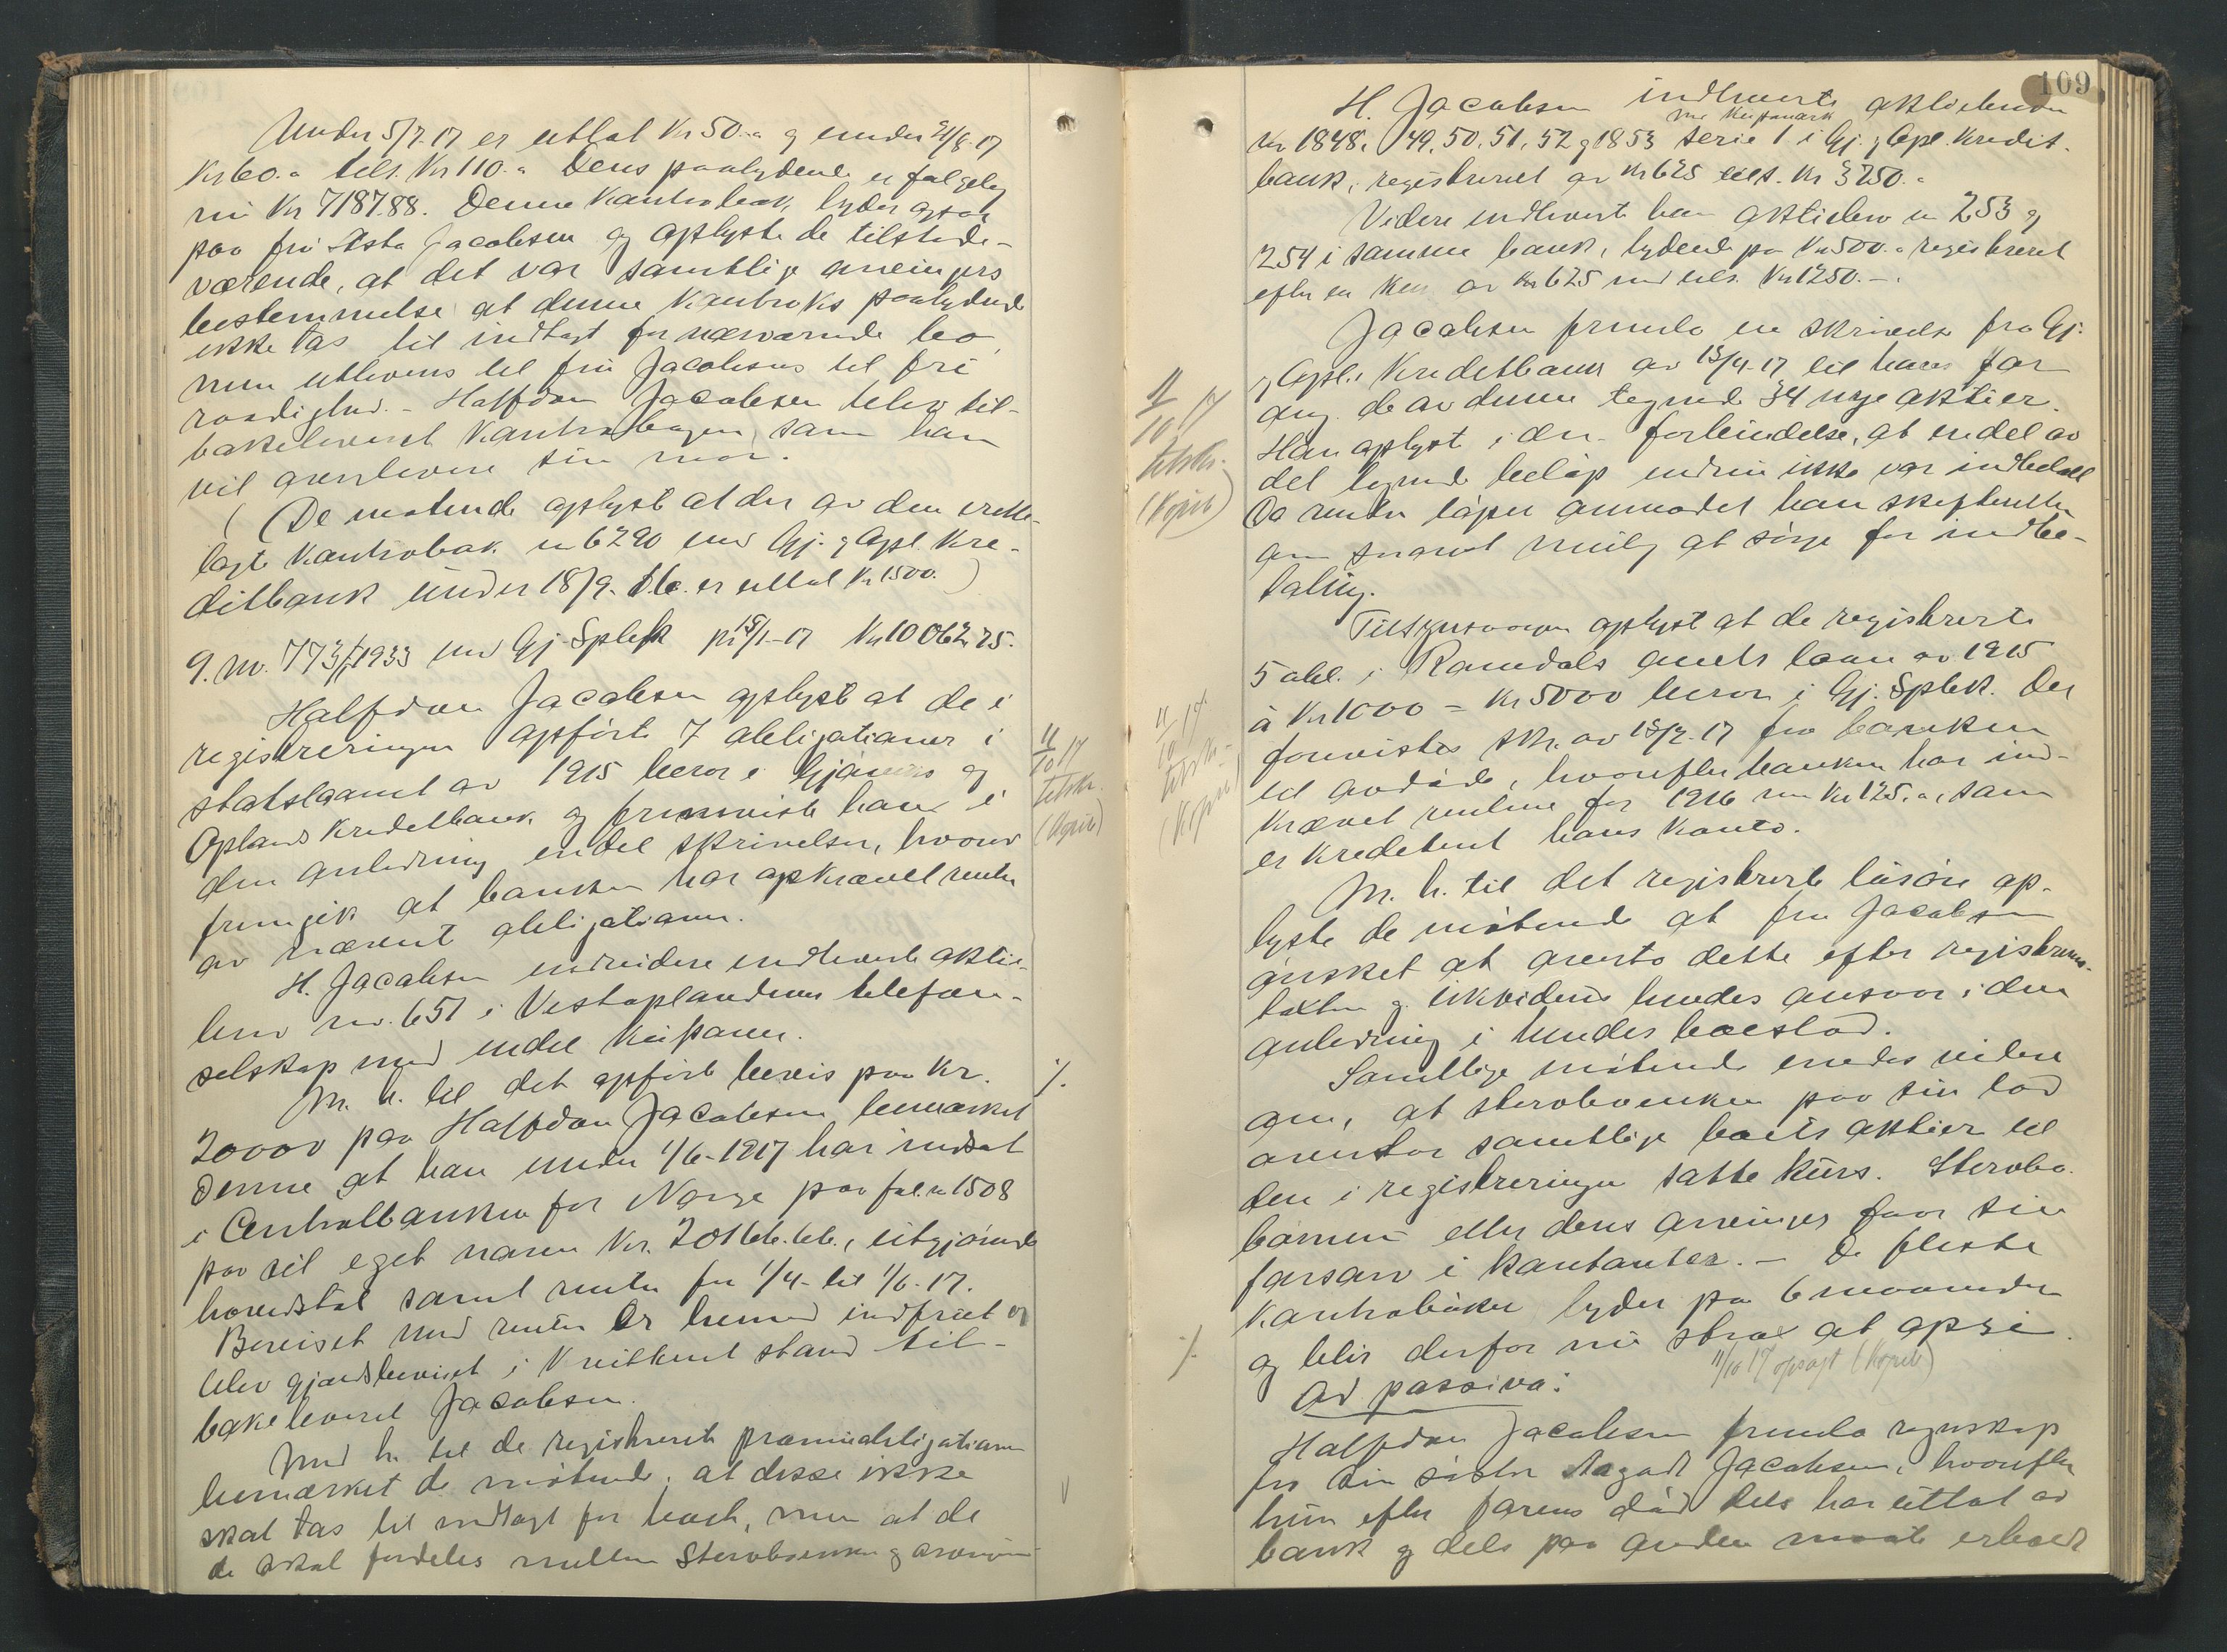 Under 5/7-17 er uttat Kr 50.- og under 21/8-17
Kr 60.- tils. Kr 110.- Dens paalydende er følgelig
nu Kr 7187.88. Denne kontrabok lyder ogsaa
paa fru Asta Jacobsen og oplyste de tilstede-
værende, at det var samtlige arvingers
bestemmelse at denne kontraboks paalydende
ikke tas til indtægt for nærværende bo,
men utleveres til fru Jacobsens til fri
raadighed. - Halfdan Jacobsen blev til-
bakelevert kontraboken, som han
vil overlevere sin mor.
(De møtende oplyste at der av den frem-
lagte kontrabok nr 6290 med Gj. og Opl. Kre-
ditbank under 18/9. 16. er uttat Kr 1500.)
9. Nr. 773/1933 med Gj. Spbk pr 15/1-17 Kr 10062.75.
Halfdan Jacobsen oplyste at de i
registreringen opførte 7 obligationer i
statslaanet av 1915 beror i Gjøviks og
Oplands Kreditbank og fremviste han i
den anledning endel skrivelser, hvorav
fremgik at banken har opkrævet renter
av nævnte obligationer.
H. Jacobsen endvidere indleverte aktie-
brev nr. 651 i Vestoplandenes telefon-
selskap med endel kuponer.
M. h. til det opførte bevis paa Kr.
20000 paa Halfdan Jacobsen bemerket
denne at han under 1/6-1917 har indsat
i Centralbanken for Norge paa fol. nr 1508
paa sit eget navn Kr. 20166.66., utgjørende
hovedstol samt renter fra 1/4- til 1/6-17.
Beviset med renter er herved indfriet og
blev gjældsbeviset i kvittert stand til-
bakelevert Jacobsen.
Med h. til de registrerte præmieobligationer
bemerket de møtende, at disse ikke
skal tas til indtægt for boet, men at de
de skal fordeles mellem Sterboenken og arvingerne
11/10 17
tilskr.
(Kopib)
%.
109
H. Jacobsen indleverte aktiebreve
med kuponark
Nr 1848, 49, 50, 51, 52 og 1853 serie 1 i Gj. og Opl. Kredit-
bank, registreret av Kr 625 tils. Kr 3750.-
Videre indleverte han aktiebrev nr 253 og
254 i samme bank, lydende paa Kr 500.- registreret
efter en kurs av Kr 625 med tils. Kr 1250.-.
Jacobsen fremla en skrivelse fra Gj.
og Opl. Kreditbank av 13/4-17 til hans far
ang. de av denne tegnede 34 nye aktier.
Han oplyste i den forbindelse, at endel av
det tegnede beløp endnu ikke var indbetalt
Da renter løper anmodet han skifteretten
om snarest mulig at sørge for indbe-
taling.
Tilsynsvergen oplyst at de registrerte
5 obl. i Romsdals amts laan av 1915
à Kr 1000 = Kr 5000 beror i Gj. Spbk. Der
foreviste skr. av 13/2-17 fra banken
til avdøde, hvorefter banken har ind-
krævet rentene for 1916 med Kr 125.-, som
er krediteret hans konto.
M. h. til det registrerte løsøre op-
lyste de møtende at fru Jacobsen
ønsket at overta dette efter registrerings-
taksten og likvideres hendes ansvar i den
anledning i hendes boeslod.
Samtlige møtende enedes videre
om, at sterboenken paa sin lod
overtar samtlige boets aktier til
den i registreringen satte kurs. Sterbo-
børnene eller dens arvinger faar sin
farsarv i kontanter. - De fleste
kontrabøker lyder paa 6 maaneder
og blir derfor nu strax at opsi.
11/10 17 opsagt (Kopib)
Ad passiva:
Halfdan Jacobsen fremla regnskap
fra sin søster Aagodt Jacobsen, hvorefter
hun efter farens død dels har uttat av
bank og dels paa anden maate erholdt
11/10 17
tilskr.
(Kopib)
11/10 17
tilskr.
(Kopib)
%.